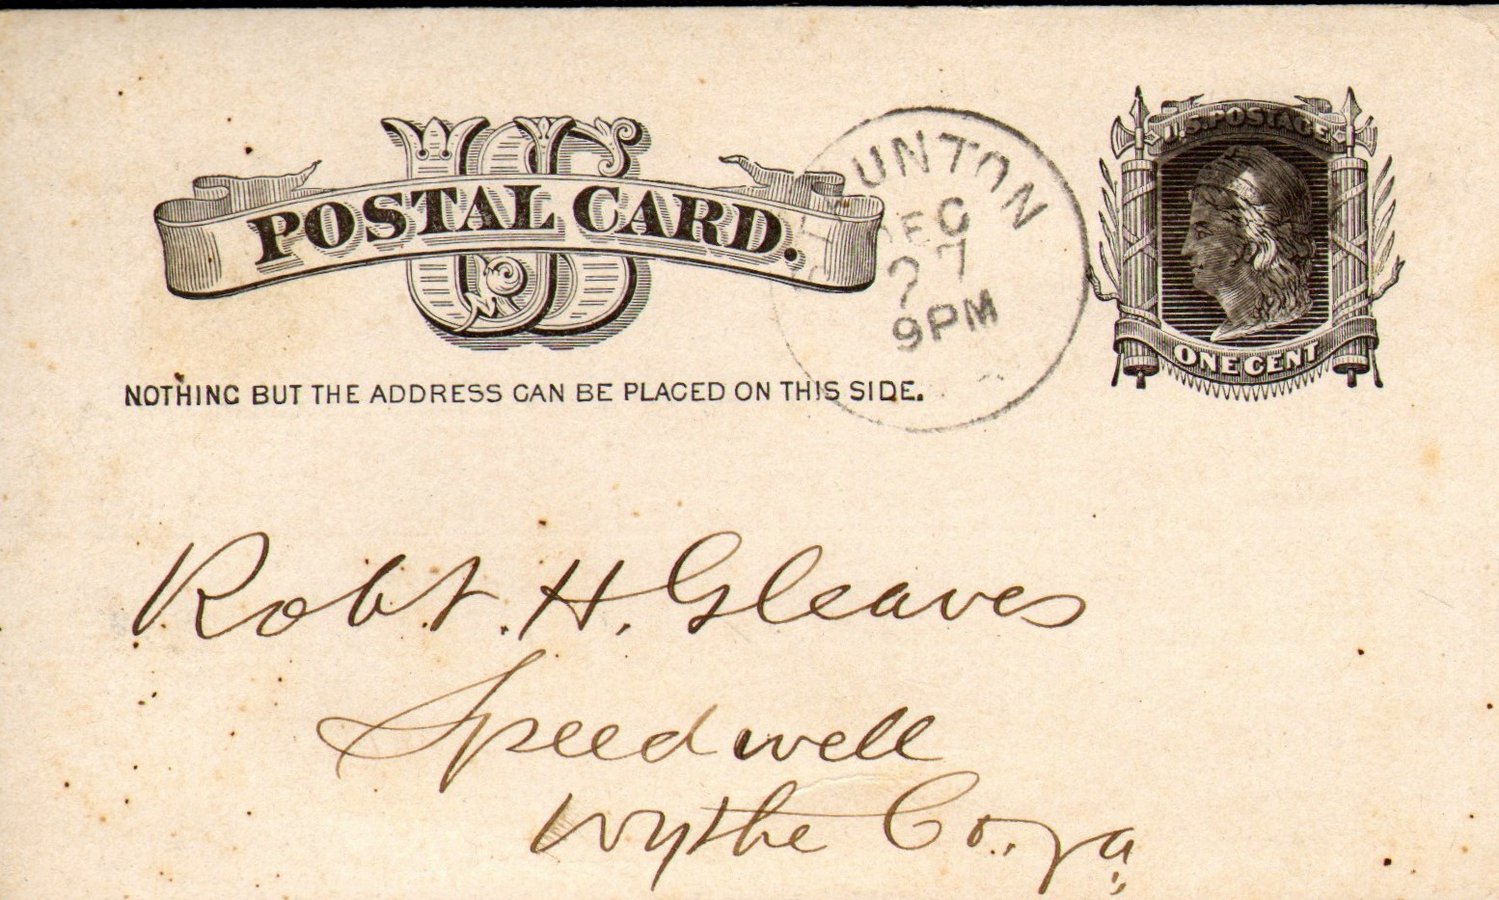 US
POSTAL CARD.
U.S. POSTAGE
ONE CENT
STAUNTON
DEC
27
9PM
NOTHING BUT THE ADDRESS CAN BE PLACED ON THIS SIDE.
Robt. H. Gleaves
Speedwell
Wythe Co., Va